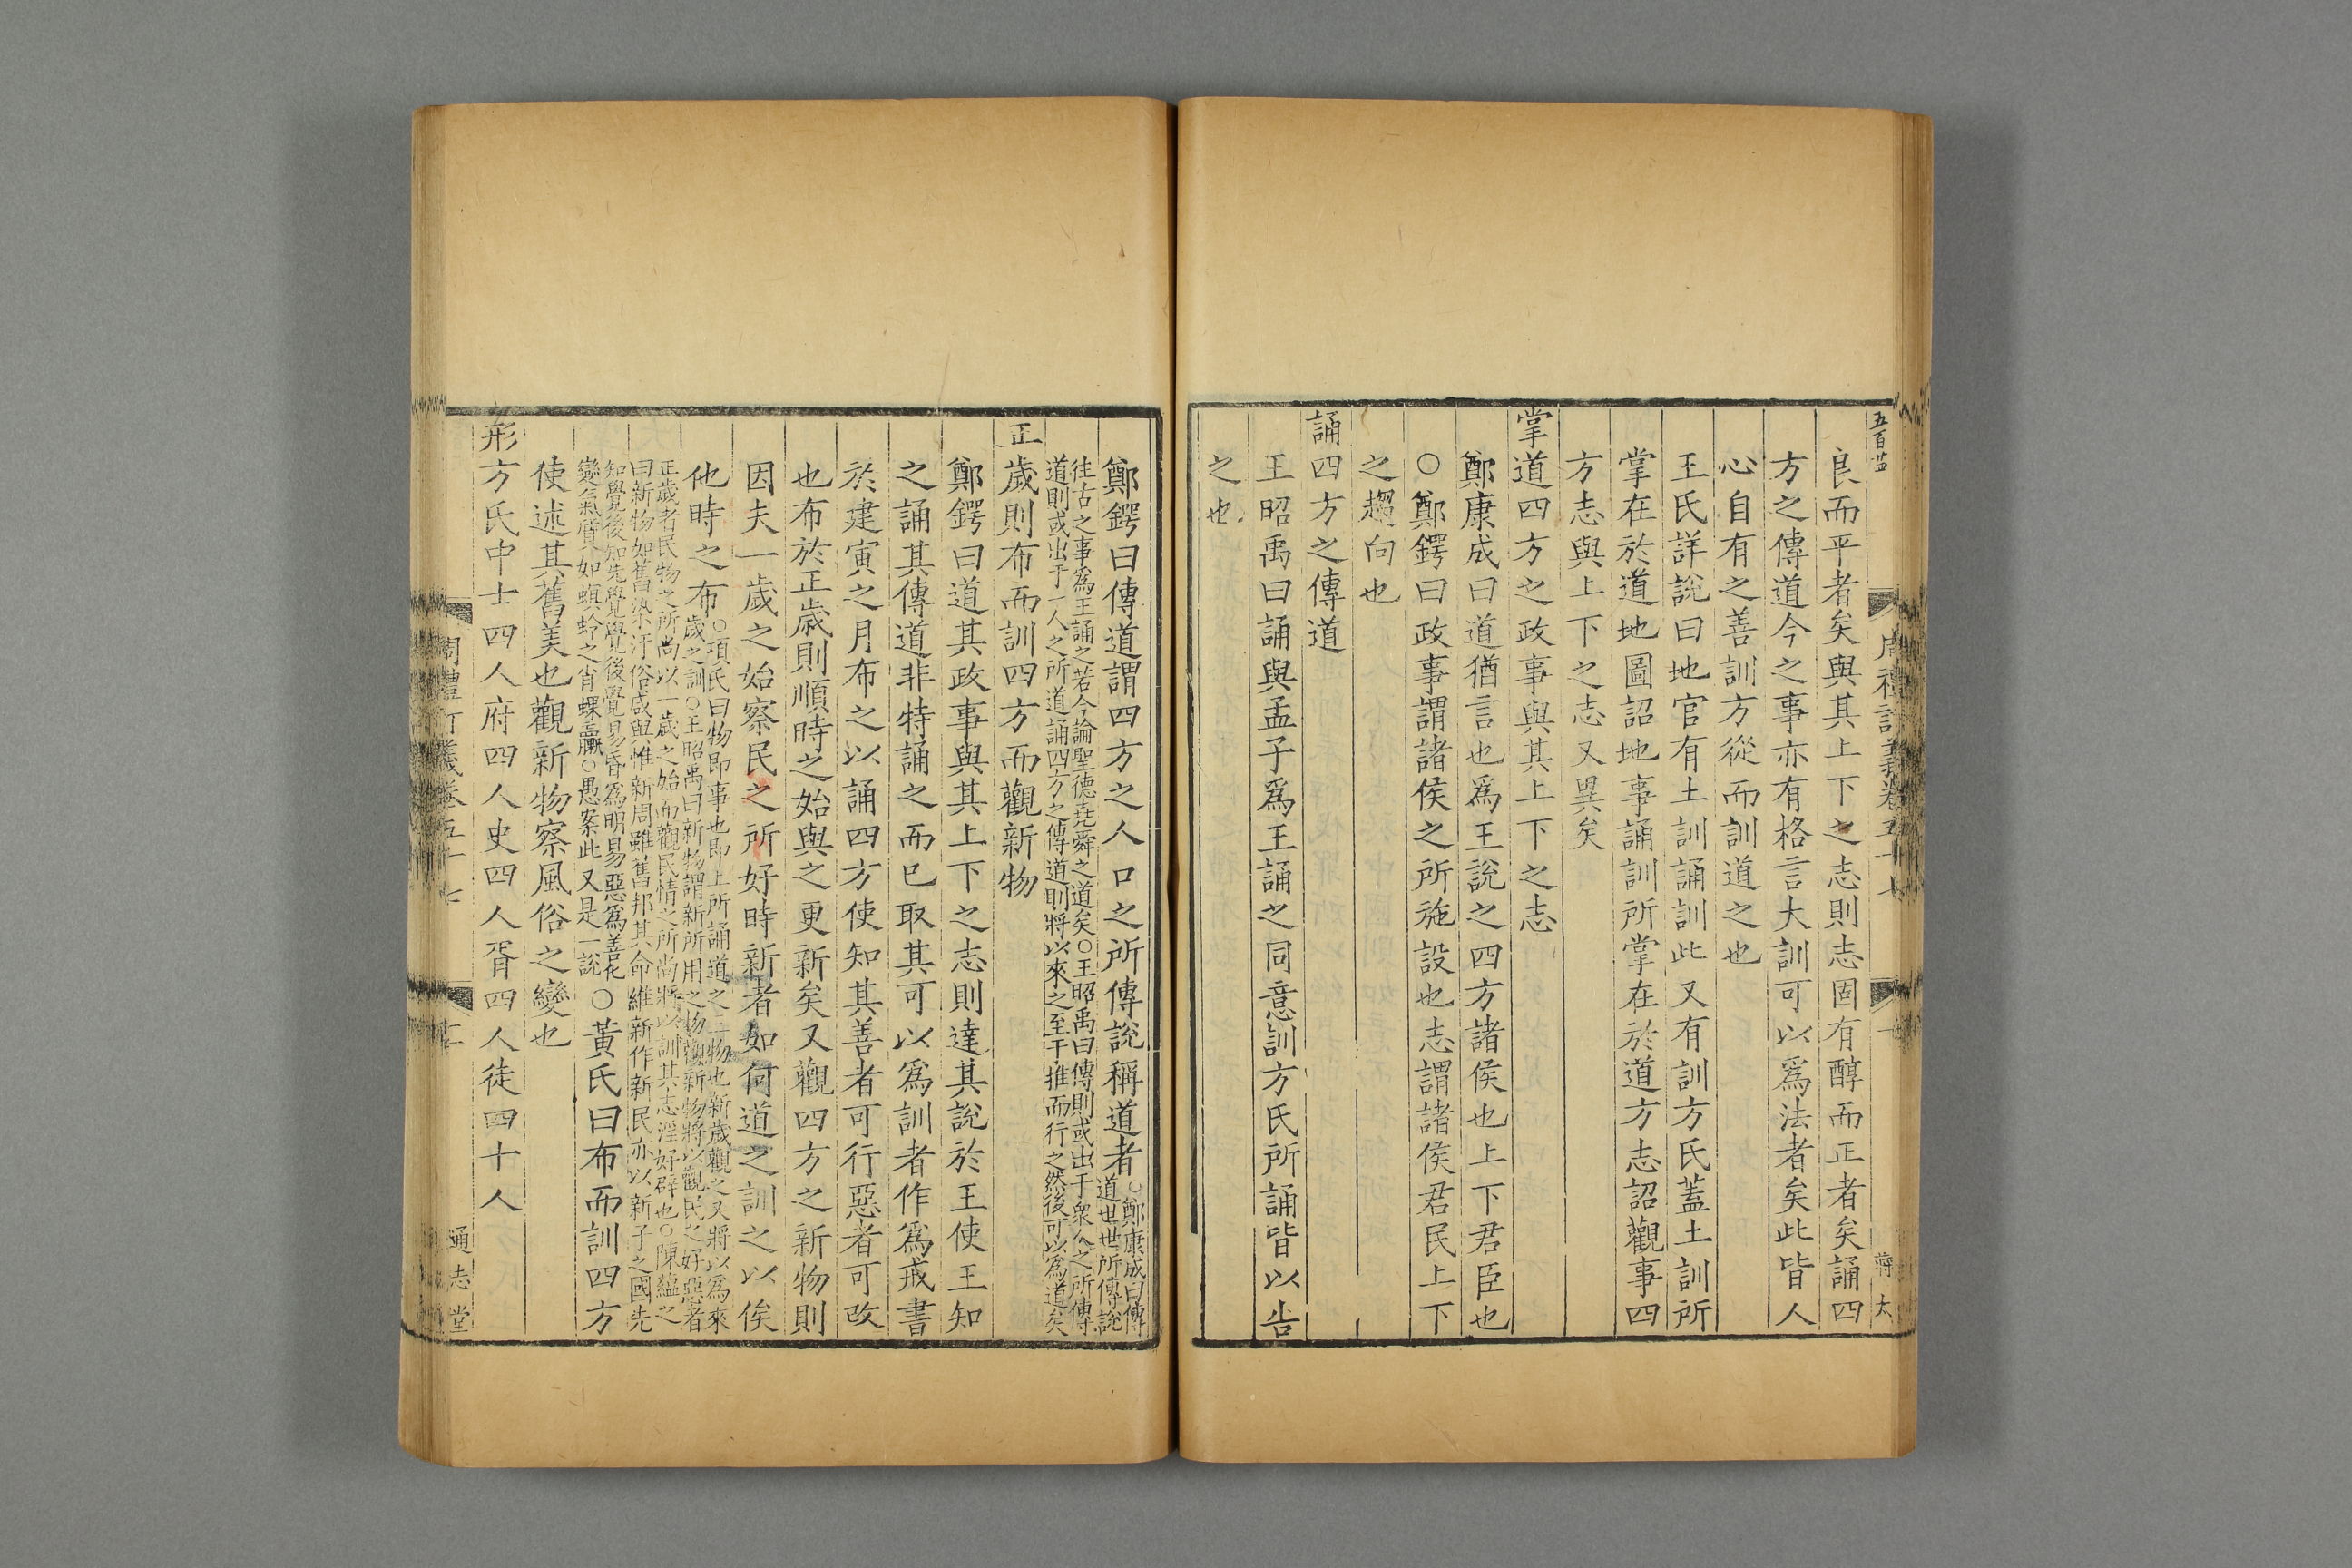 五百廿
周禮訂義卷五十七
十
蔣太
良而平者矣與其上下之志則志固有醇而正者矣誦四
方之傳道今之事亦有格言大訓可以爲法者矣此皆人
心自有之善訓方從而訓道之也
王氏詳說曰地官有土訓誦訓此又有訓方氏蓋土訓所
掌在於道地圖詔地事誦訓所掌在於道方志詔觀事四
方志與上下之志又異矣
掌道四方之政事與其上下之志
鄭康成曰道猶言也爲王說之四方諸侯也上下君臣也
○鄭鍔曰政事謂諸侯之所施設也志謂諸侯君民上下
之趨向也
誦四方之傳道
王昭禹曰誦與孟子爲王誦之同意訓方氏所誦皆以告
之也
鄭鍔曰傳道謂四方之人口之所傳說稱道者○鄭康成曰傳
道世世所傳說
往古之事爲王誦之若今論聖德堯舜之道矣○王昭禹曰傳則或出于衆人之所傳
道則或出于一人之所道誦四方之傳道則將以來之至于推而行之然後可以爲道矣
正歲則布而訓四方而觀新物
鄭鍔曰道其政事與其上下之志則達其說於王使王知
之誦其傳道非特誦之而已取其可以爲訓者作爲戒書
於建寅之月布之以誦四方使知其善者可行惡者可改
也布於正歲則順時之始與之更新矣又觀四方之新物則
因夫一歲之始察民之所好時新者如何道之訓之以俟
他時之布○項氏曰物即事也即上所誦道之二物也新歲觀之又將以爲來
歲之訓○王昭禹曰新物謂新所用之物觀新物將以觀民之好惡者
正歲者民物之所尚以一歲之始而觀民情之所尚將以訓其志淫好辟也○陳蘊之
曰新物如舊染汙俗咸與惟新周雖舊邦其命維新作新民亦以新子之國先
知覺後知先覺覺後覺易昏爲明易惡爲善化
變氣質如螟蛉之肖蜾蠃○愚案此又是一說○黃氏曰布而訓四方
使述其舊美也觀新物察風俗之變也
形方氏中士四人府四人史四人胥四人徒四十人
周禮訂義卷五十七
十一
通志堂